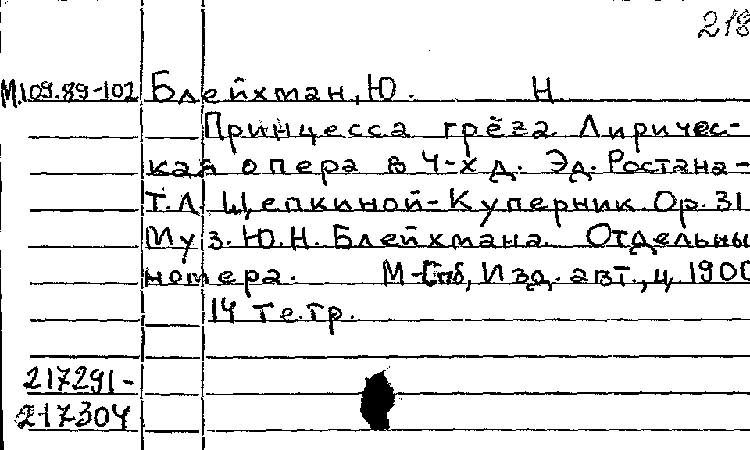 218
М.109.89-102 Блейхман, Ю. Н
Принцесса грёза Лиричес-
кая опера в 4-х д. Эд. Ростана-
Т.Л. Щепкиной-Куперник. Ор. 31
Муз. Ю.Н. Блейхмана. Отдельны
номера. М-Спб, Изд. авт., ц, 1900
14 тетр.
217291-
217304